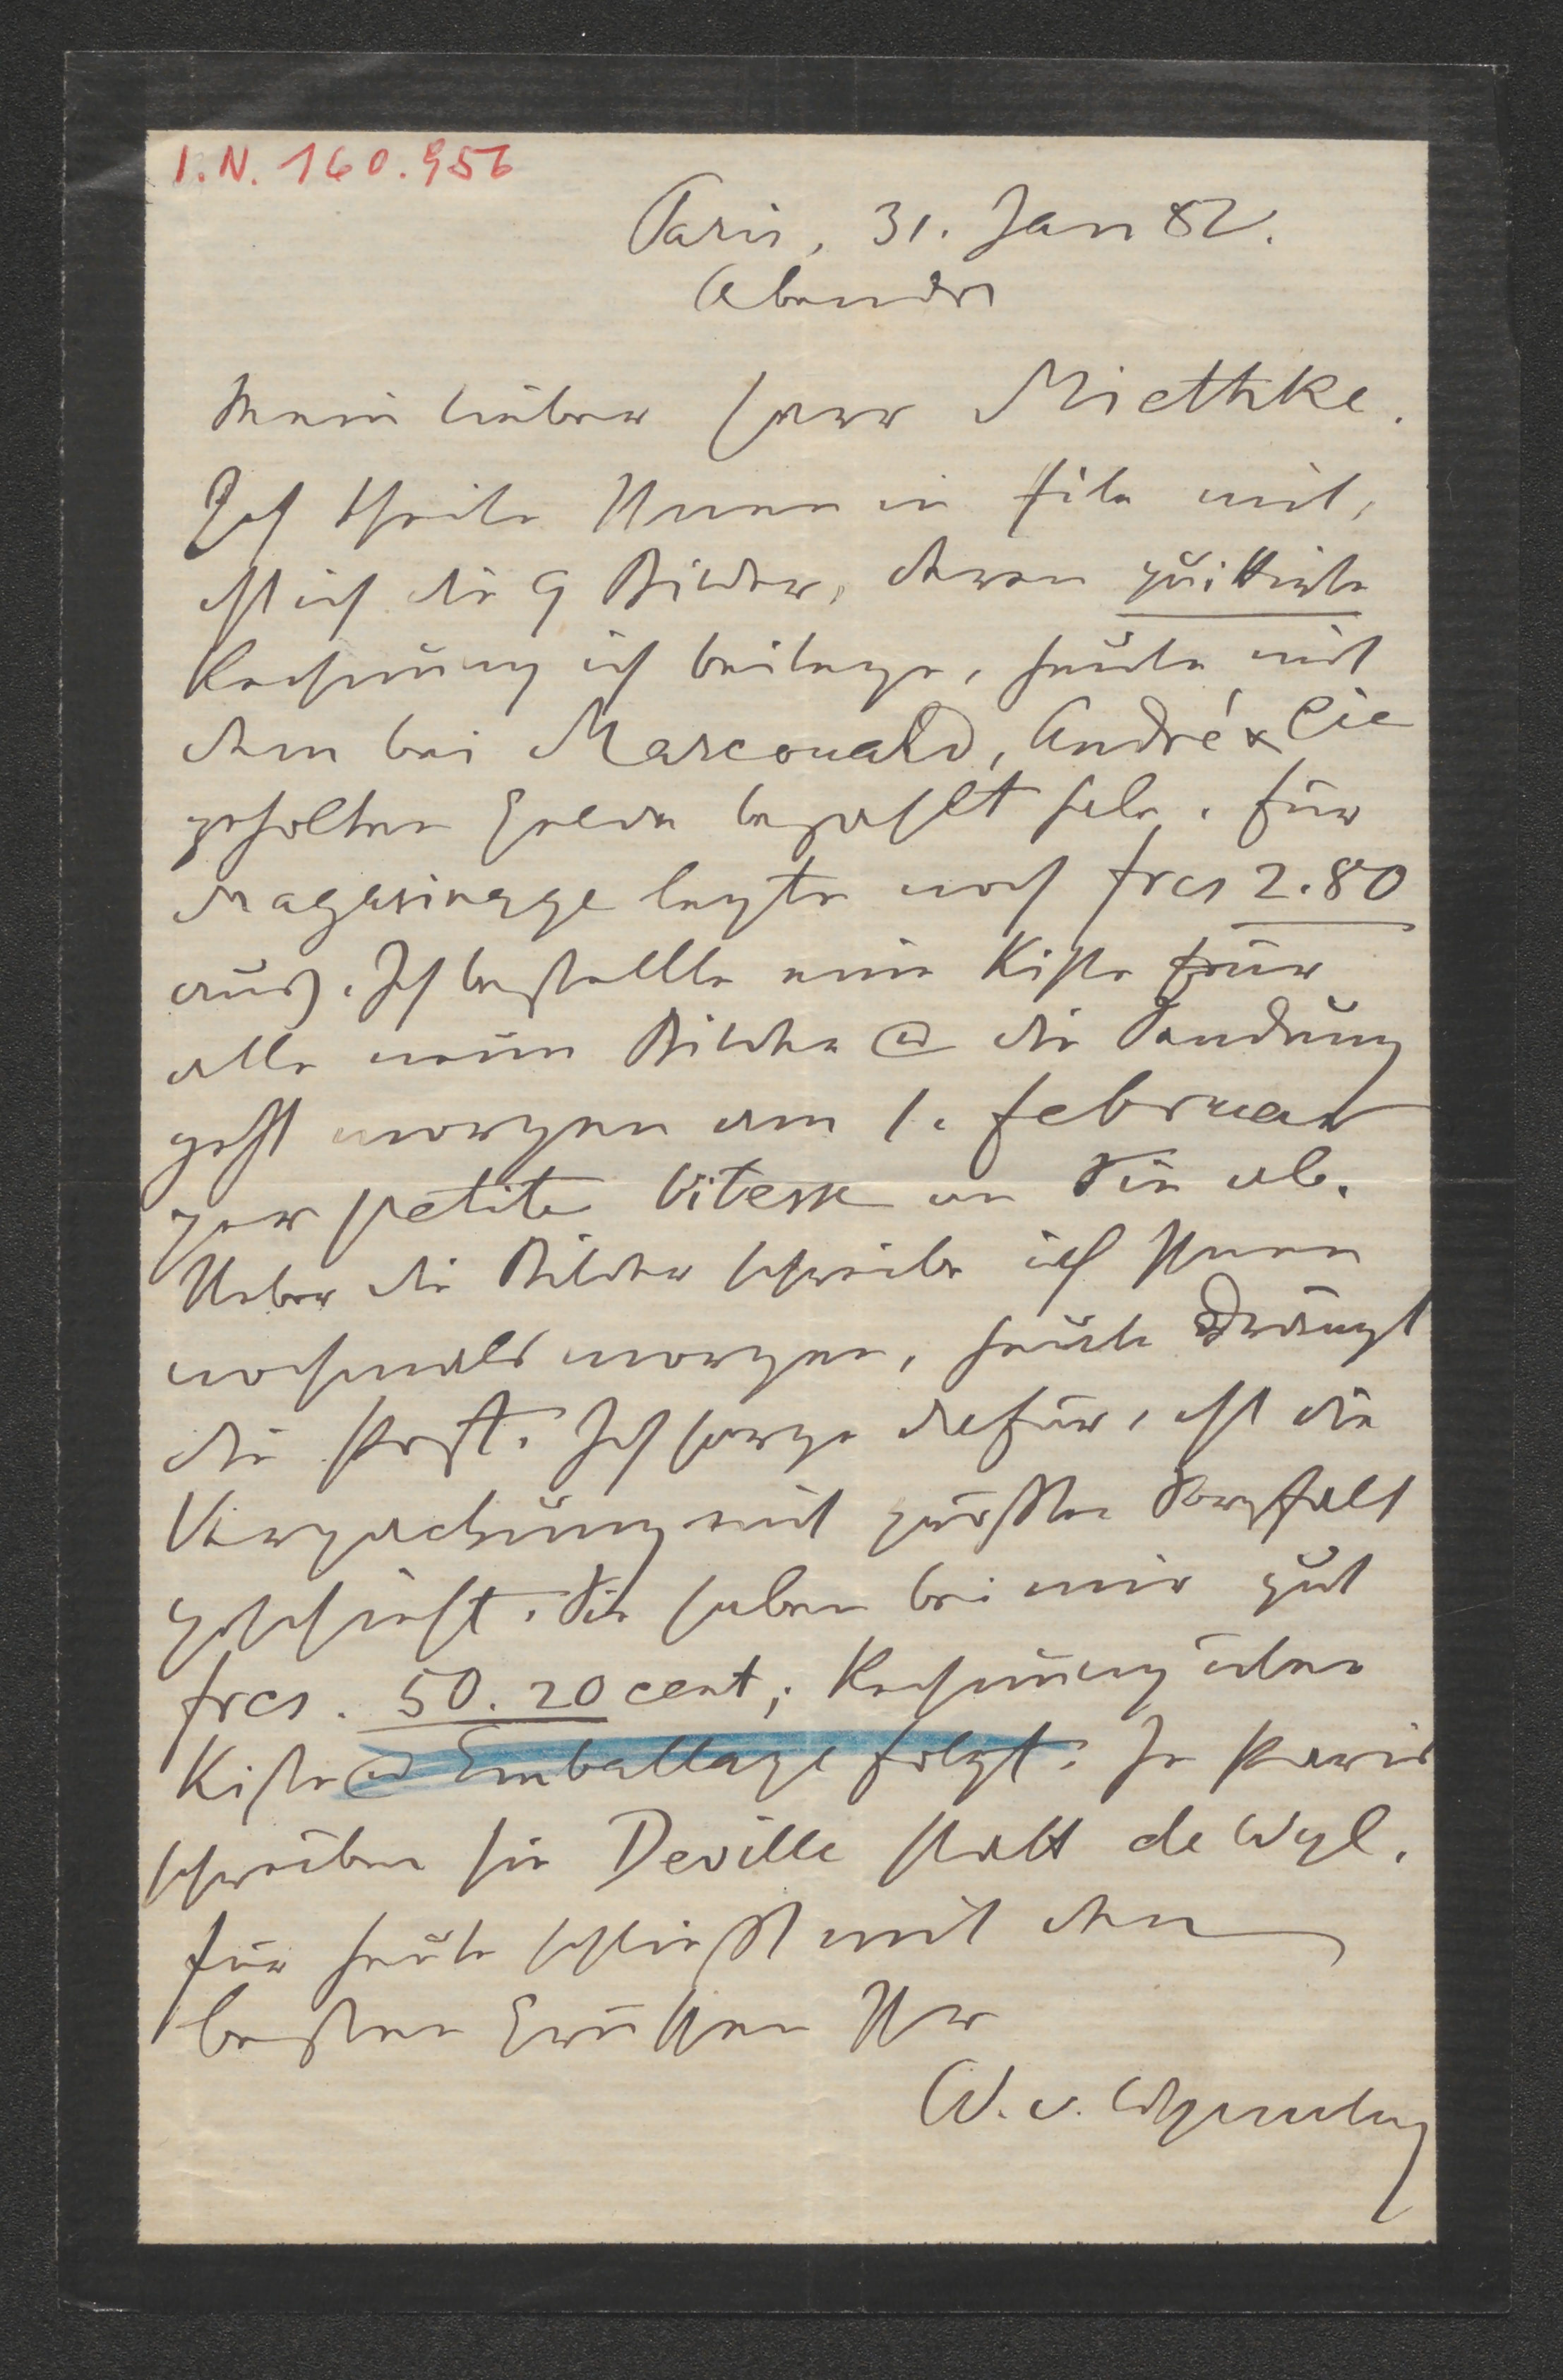 I.N. 160.956
Paris, 31. Jan 82.
Abends
Mein lieber Herr Miethke.
Ich theile Ihnen in Eile mit,
dß ich die 9 Bilder, deren quittirte
Rechnung ich beilege, heute mit
dem bei Marcouald, André & Cie
geholten Gelde bezahlt habe. Für
Magasinage legte noch frcs 2.80
aus. Ich bestellte eine Kiste für
alle neun Bilder & die Sendung
geht morgen am 1. Februar
per petite Vitesse an Sie ab.
Ueber die Bilder schreibe ich Ihnen
nochmals morgen, heute drängt
die Post. Ich sorge dafür, dß die
Verpackung mit größter Sorgfalt
geschieht. Sie haben bei mir gut
frcs. 50.20 cent; Rechnung über
Kiste & Emballage folgt. In Paris
schreiben sie Deville statt de Wyl.
Für heute schließt mit den
besten Grüssen Ihr
W. v.